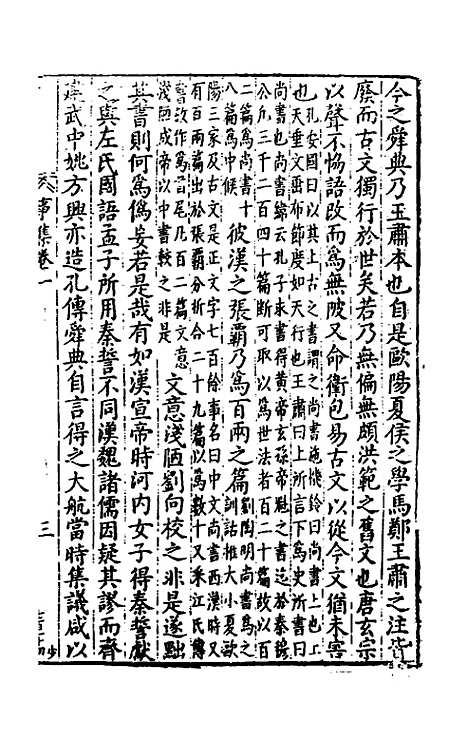 今之舜典乃王肅本也自是歐陽夏侯之學馬鄭王肅之注皆
廢而古文獨行於世矣若乃無偏無頗洪範之舊文也唐玄宗
以聲不恊語改而爲無陂又命衛包易古文以從今文猶未害
也
孔安國曰以其上古之書謂之尚書璇璣鈐曰尚書上也
天垂文象布節度如天行也王肅曰上所言下爲史所書曰
尚書也尚書緯云孔子求書得黄帝玄孫帝魁之書迄於秦穆
公凡三千二百四十篇斷可取以爲世法者百二十篇故以百
二篇爲尚書十
八篇爲中候
彼漢之張霸乃爲百兩之篇
劉陶明尚書爲之
訓詁推大小夏歐
陽三家及古文是正文字七百餘事名曰中文尚書西漢時又
有百兩篇出於張霸分析合二十九篇以爲數十又采左氏傳
書敘作爲首尾凡百二篇文意
淺陋成帝以中書較之非是
文意淺陋劉向校之非是遂黜
其書則何爲僞妄若是哉有如漢宣帝時河内女子得秦誓獻
之與左氏國語孟子所用秦誓不同漢魏諸儒因疑其謬而齊
建武中姚方興亦造孔傳舜典自言得之大航當時集議咸以
事集卷一
三